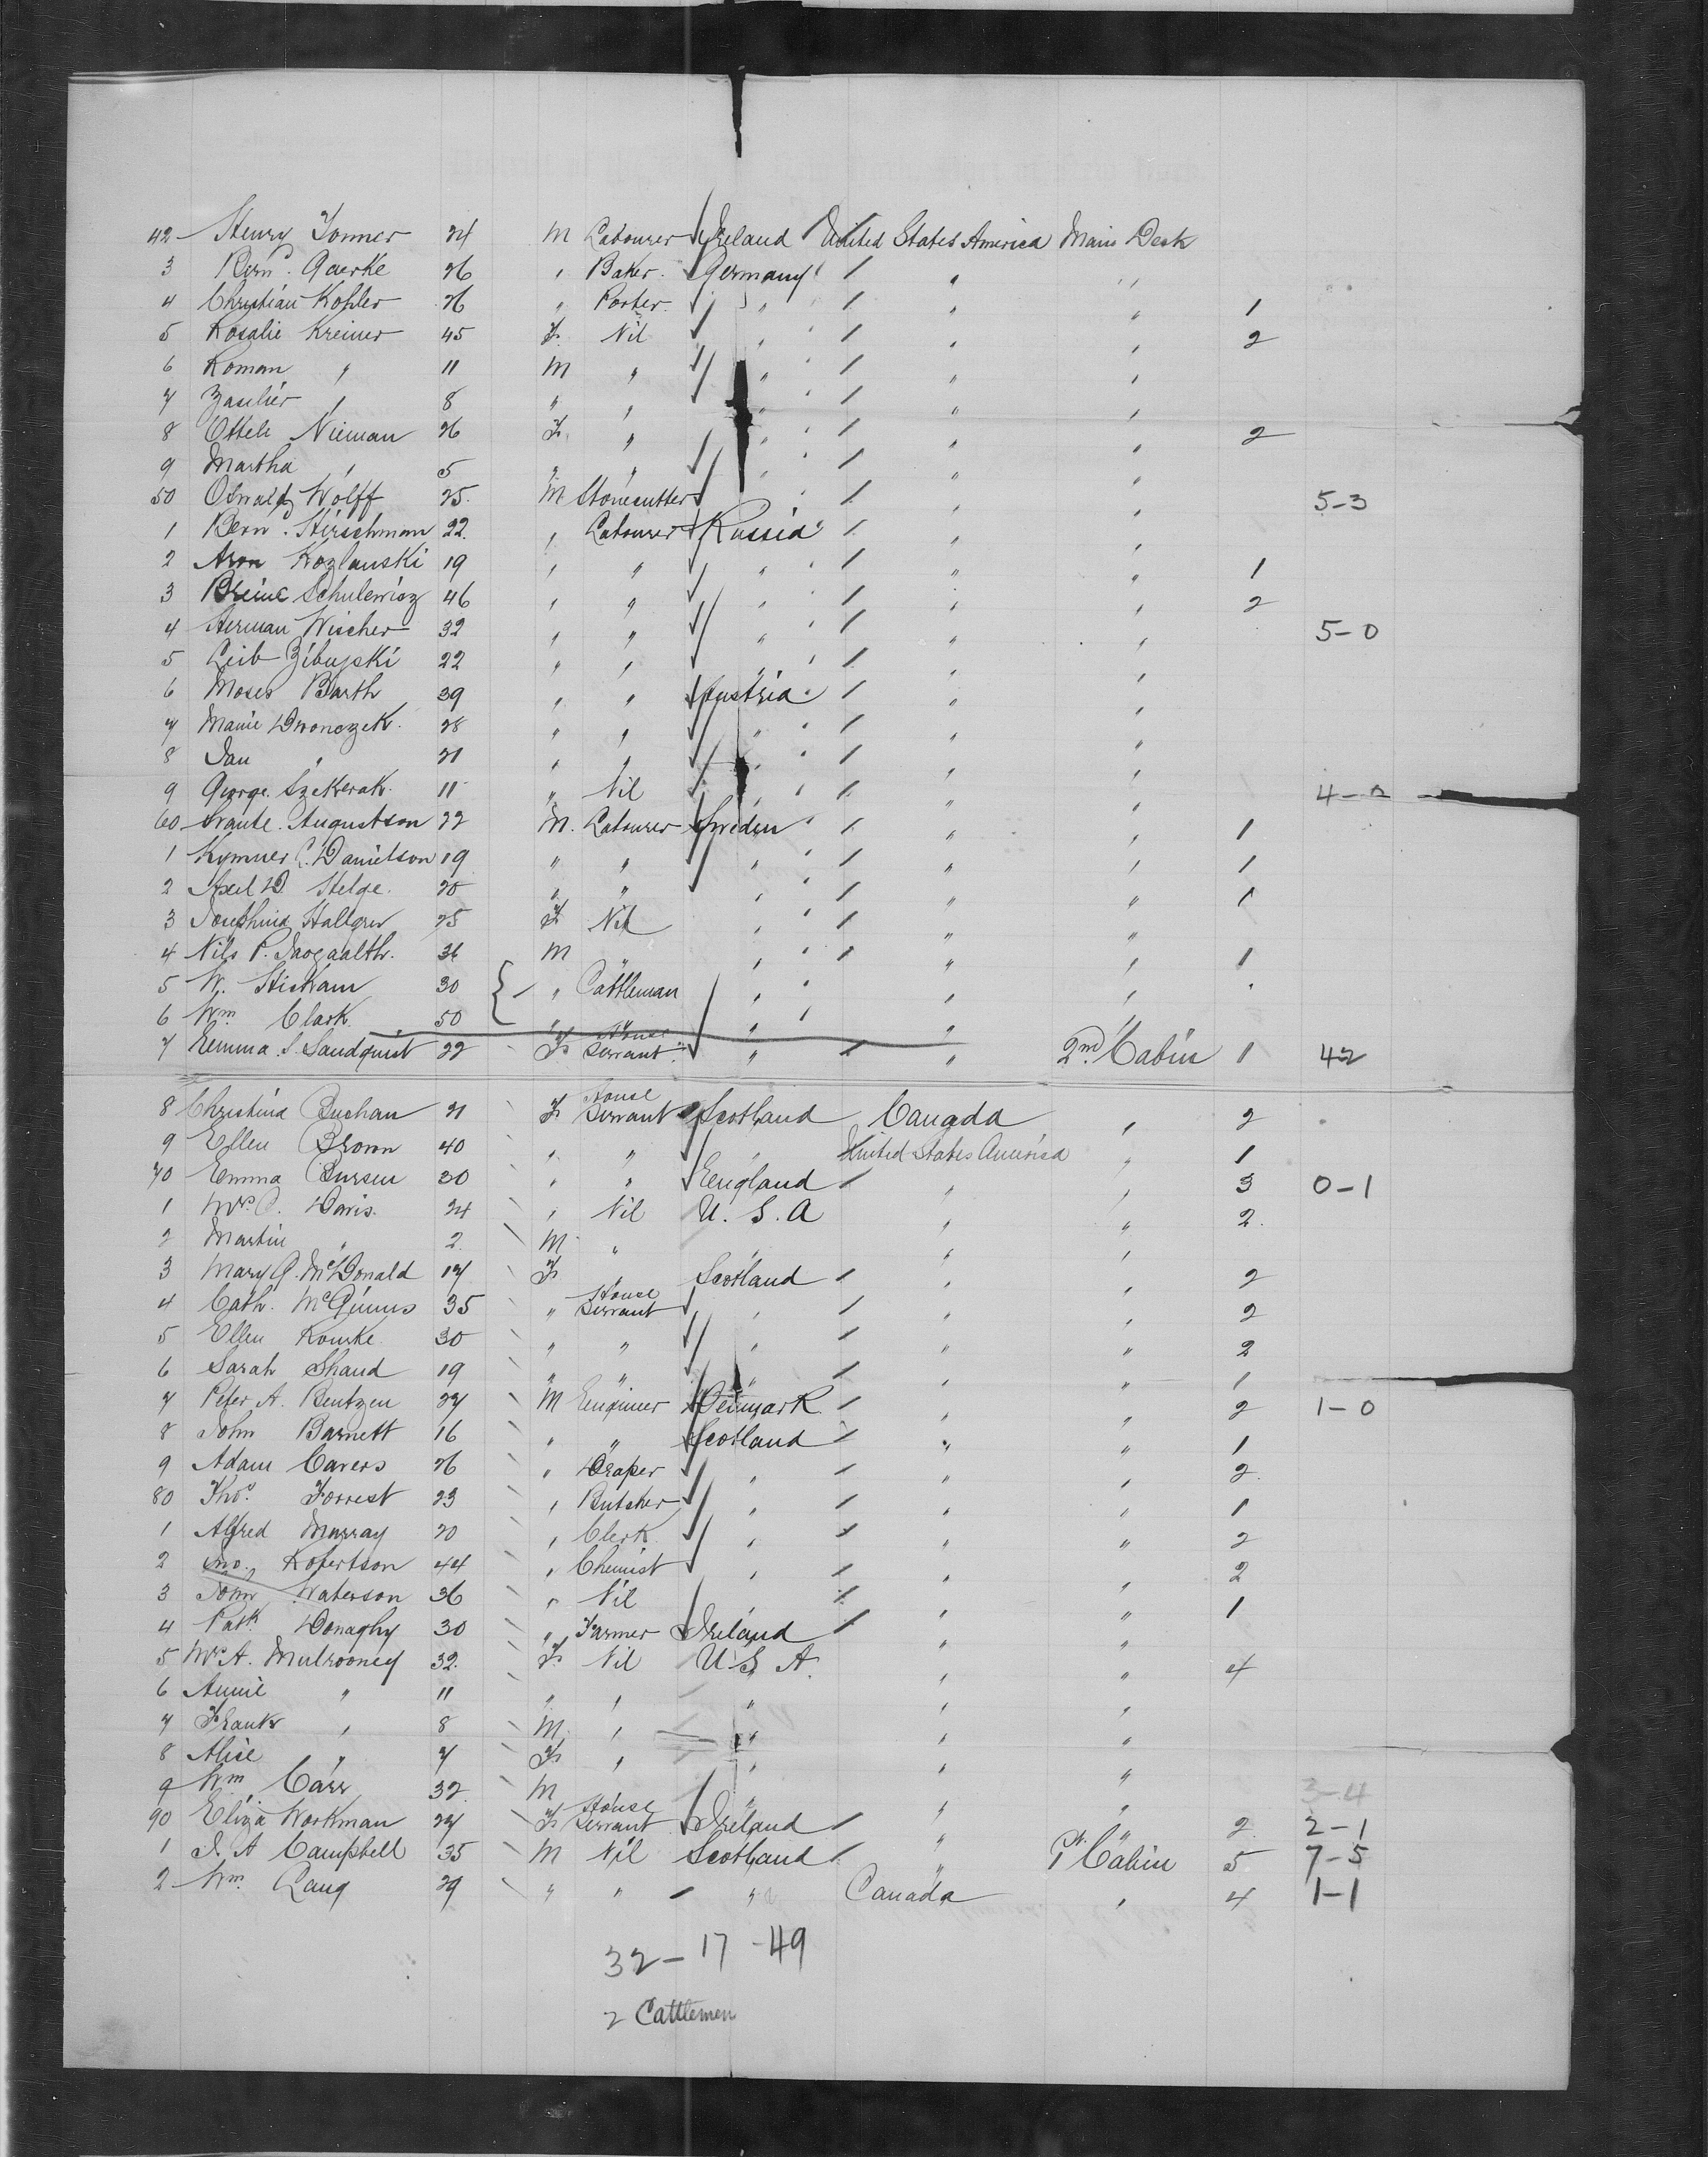 42 Henry Tonner 24 M Labourer Ireland United States America Main Deck
3 Bern^d. Gaerke 26 " Baker Germany " "
4 Christian Kohler 26 " Porter " " " 1
5 Rosalie Kreiner 45 F. Nil " " " 2
6 Roman " 11 M " " " "
7 " 8 " " " " "
8 Nieman 26 F. " " " " 2
9 Martha " 5 " " " " "
50 Oswald Wolff 25. M Stonecutter " " " 5-3
1 Bern^d. Hirschman 22. " Labourer Russia " "
2 Aron Kozlanski 19 " " " " " 1
3 Schulewicz 46 " " " " " 2
4 Herman Wischer 32 " " " " " 5-0
5 Leib 22 " " " " "
6 Moses Barth 39 " " Austria " "
7 Dwonczek 28 " " " " "
8 Jan " 21 " " " " "
9 George Szekerak 11 " Nil " " " 4-0
60 Augustson 22 M. Labourer Sweden " " 1
1 C. Danielson 19 " " " " " 1
2 Axel D. Helge 20 " " " " " 1
3 Josephina Hallgren 25 F Nil " " "
4 Nils P. 36 M " " " " 1
5 W. Hickam 30 " Cattleman " " "
6 Wm. Clark 50 " " " " "
7 Emma S. Sandquist 22 F House Servant " " 2nd Cabin 1 42
8 Christina Buchan 21 F House Servant Scotland Canada " 2
9 Ellen Brown 40 " " " United States America " 1
70 Emma Bursen 30 " " England " " 3 0-1
1 Mrs. C. Davis. 24 " Nil U. S. A " " 2.
2 Martin " 2. M " " " "
3 Mary G. McDonald 17 F " Scotland " " 2
4 Cath. McGinnis 35 " House Servant " " " 2
5 Ellen Rourke 30 " " " " " 2
6 Sarah Shand 19 " " " " " 1
7 Peter A. Bentzen 27 M Engineer Denmark " " 2 1-0
8 John Barnett 16 " " Scotland " " 1
9 Adam Cavers 26 " Draper " " " 2.
80 Thos. Forrest 23 " Butcher " " " 1
1 Alfred Murray 20 " Clerk " " " 2
2 Jno. Robertson 44 " Chemist " " " 2
3 John Waterson 36 " Nil " " " 1
4 Patk. Donaghy 30 " Farmer Ireland " "
5 Mrs A. Mulrooney 32. F. Nil U. S. A. " " 4
6 Annie " 11 " " " " "
7 Frank " 8 M " " " "
8 Alice " 7 F " " " "
9 Wm. Carr 32 M " " " 3-4
90 Eliza Workman 27 F House Servant Ireland " " 2. 2-1
1 J. A Campbell 35 M Nil Scotland " 1st. Cabin 5 7-5
2 Wm. Lang 29 " " " Canada " 4 1-1
32-17-49
2 Cattlemen